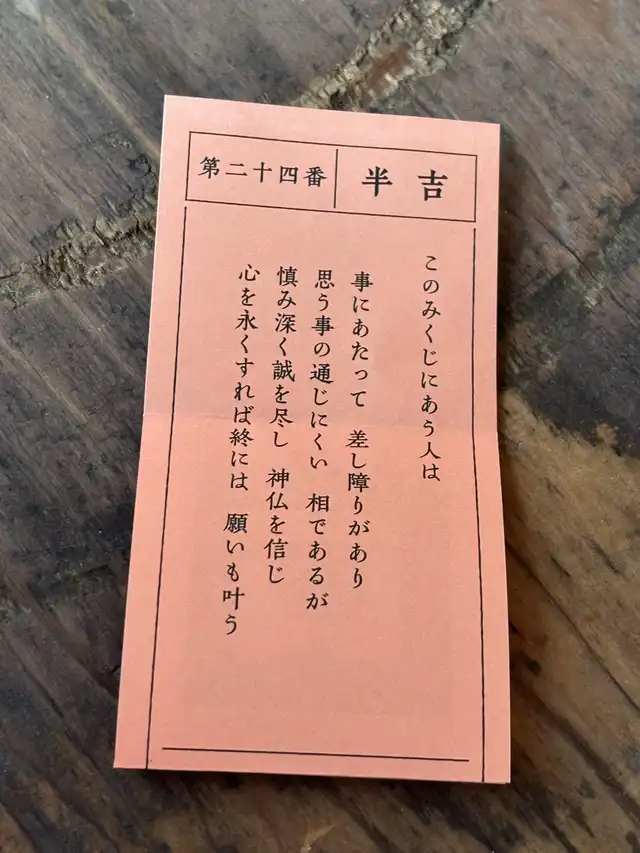 第二十四番
半吉
このみくじにあう人は
事にあたって　差し障りがあり
思う事の通じにくい　相であるが
慎み深く誠を尽し　神仏を信じ
心を永くすれば終には　願いも叶う